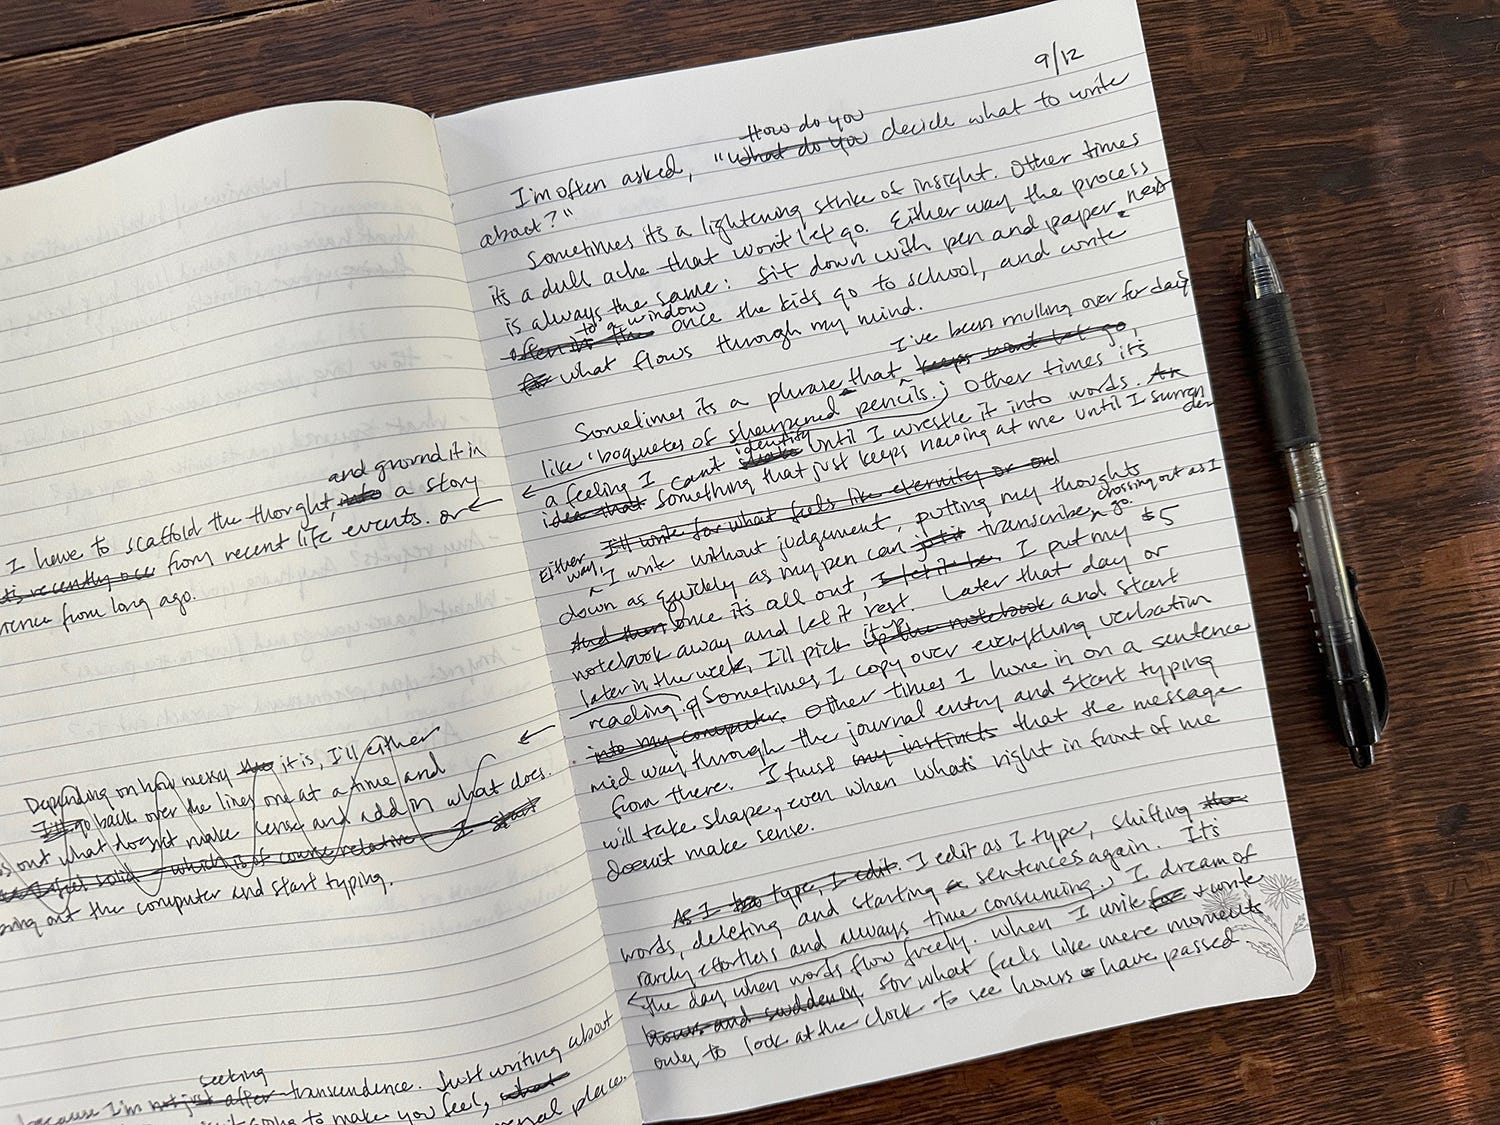 and ground it in
I have to scaffold the thought, into a story
it's recently occ from recent life events. or
rience from long ago.
Depending on how messy it is, I'll either
I'll go back over the lines one at a time and
out what doesn't make sense and add in what does.
feel solid - which is of course relative - I start
out the computer and start typing.
seeking
because I'm not just after transcendence. Just writing about
going to make you feel, what
place.
9/12
How do you
I'm often asked, "What do you decide what to write
about?"
Sometimes it's a lightening strike of insight. Other times
it's a dull ache that won't let go. Either way the process
is always the same: Sit down with pen and paper next
to a window
often it's the once the kids go to school, and write
for what flows through my mind.
I've been mulling over for days
Sometimes it's a phrase that keeps wont let go,
like 'boquetes of sharpened pencils.; Other times it's
identify
a feeling I can't until I wrestle it into words. An
idea that something that just keeps nawing at me until I surren
der
I'll write for what feels like eternity or
Either
way, I write without judgement, putting my thoughts
crossing out as I
go.
down as quickly as my pen can transcribe
And then once it's all out, I let it be, I put my $5
notebook away and let it rest. Later that day or
it up
later in the week, I'll pick up the notebook and start
reading. Sometimes I copy over everything verbatim
into my computer. Other times I hone in on a sentence
mid way through the journal entry and start typing
from there. I trust my instincts that the message
will take shape, even when what's right in front of me
doesn't make sense.
As I type, I edit. I edit as I type, shifting the
words, deleting and starting a sentences again. It's
rarely effortless and always time consuming. I dream of
the day when words flow freely. When I write for write
hours and suddenly for what feels like mere moments
only to look at the clock to see hours have passed.